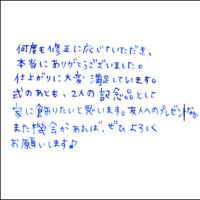 何度も修正に応じていただき、
本当にありがとうございました。
仕上がりに大変満足しています。
式のあとも、2人の記念品として
家に飾りたいと思います。友人へのプレゼントなど、
また機会があれば、ぜひよろしく
お願いします♪